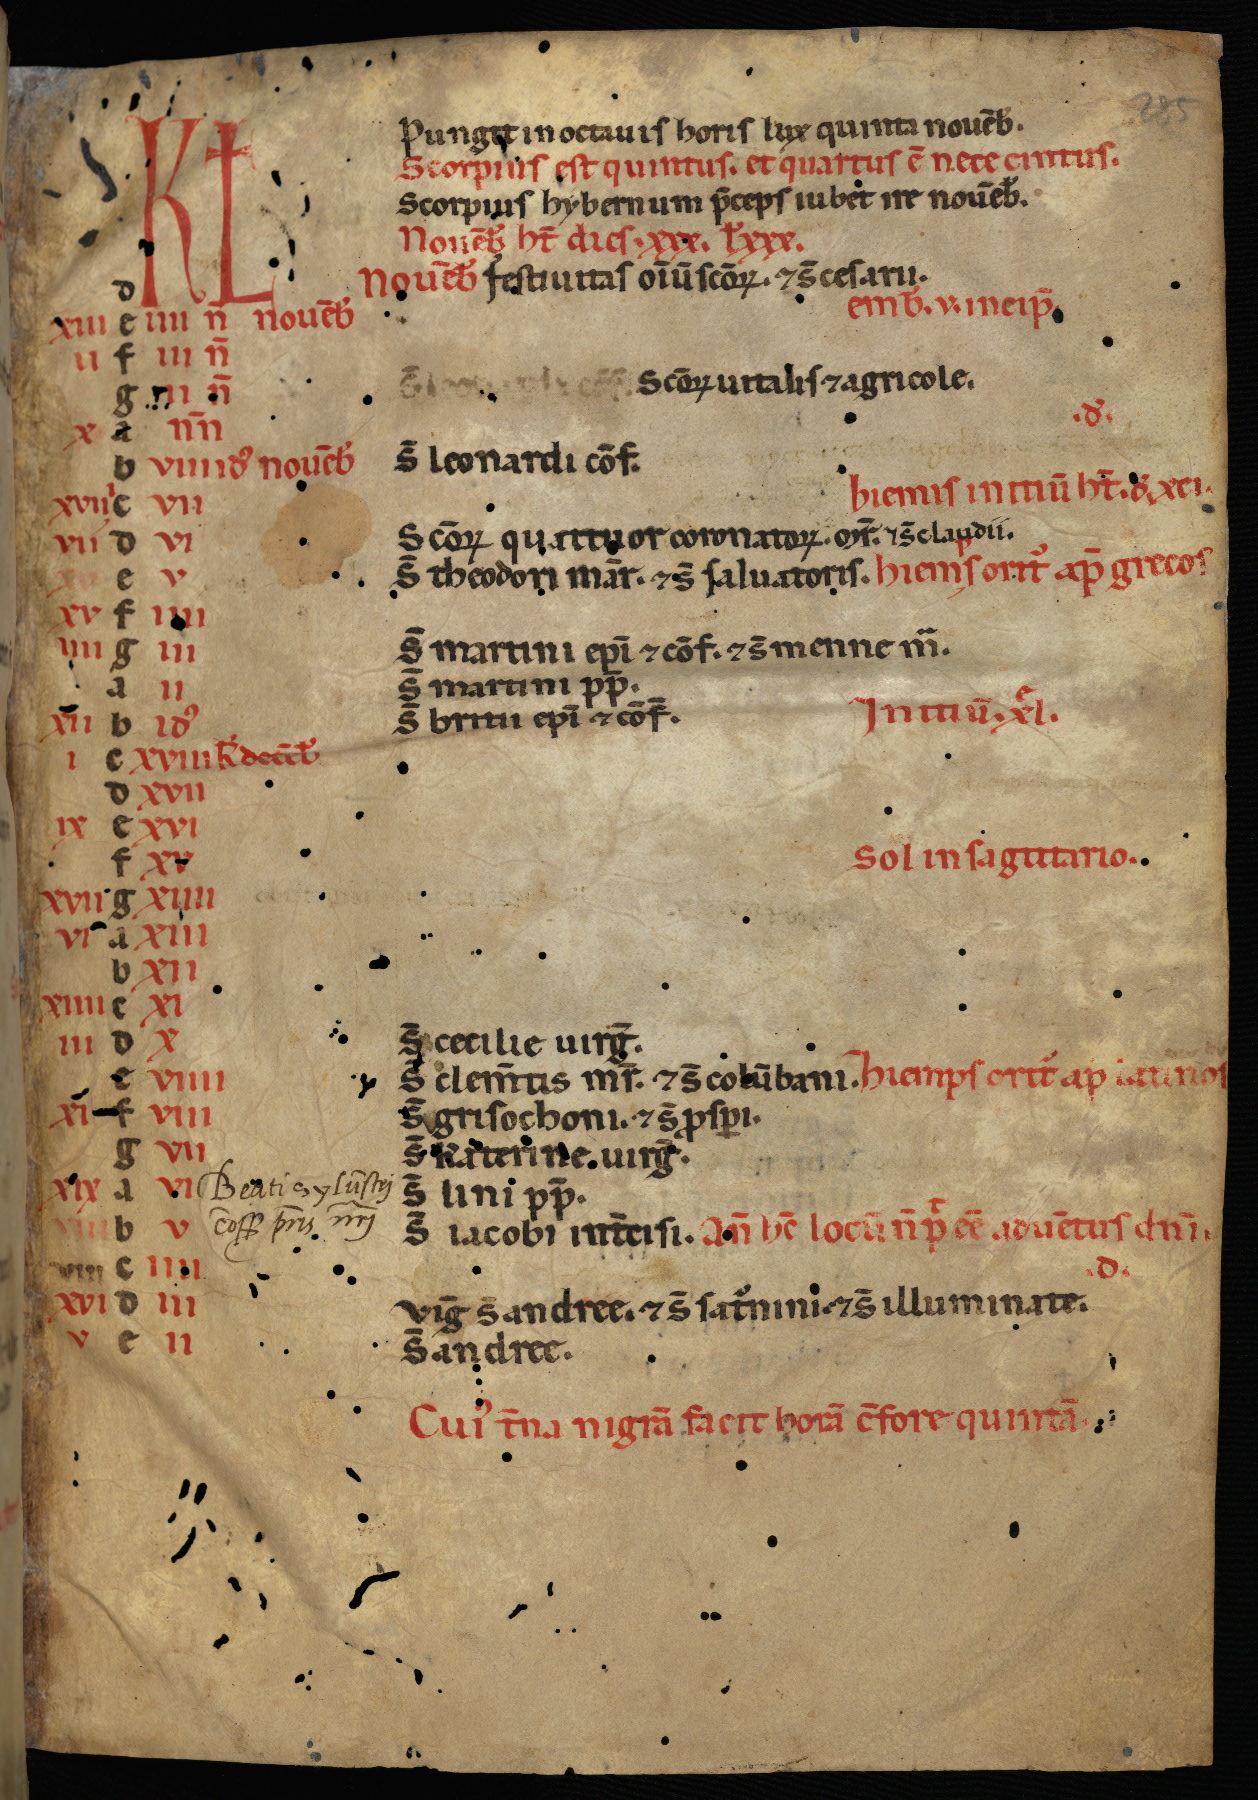 285
Pungit in octauis horis lux quinta nouēb̄.
Scorpius est quintus. et quartus ē nece cinctus.
KL Scorpius hybernum p̄ceps iubet ire nouēb̄.
Nouēb̄ ht̄ dies. xxx. l᷎ xxx.
d Nouēb̄ festiuitas oīū scōꝝ. ⁊ s̄ cesarii.
emb̄. v. incip̄.
xiii e iiii n̄ nouēb̄
ii f iii n̄
g ii n̄ Scōꝝ uitalis ⁊ agricole.
.d.
x a n̄n
b viii id᷎ nouēb̄ S̄ leonardi cōf.
hiemis initiū ht̄. d. xci.
xviii c vii
vii d vi Scōꝝ quattuor coronatoꝝ. ⁊ s̄ claudii.
e v S̄ theodori mār. ⁊ s̄ saluatoris. hiemps orit᷎ ap̄ grecos
xv f iiii
iiii g iii S̄ martini ep̄i ⁊ cōf. ⁊ s̄ menne m̄.
a ii S̄ martini pp̄.
xii b id᷎ S̄ britii ep̄i ⁊ cōf̄. Initiū. xl.
i c xviii k̄ decēb̄
d xvii
ix e xvi
f xv Sol in sagittario.
xvii g xiiii
vi a xiii
b xii
xiiii c xi
iii d x S̄ cecilie uirḡ.
e viiii S̄ clem̄tis mr̄. ⁊ s̄ colūbani. hiemps orit᷎ ap latinos
xi f viii S̄ grisochoni. ⁊ s̄ ꝓsꝑi.
g vii S̄ katerine. uirḡ.
xix a vi Beati S̄ lini pp̄.
b v S̄ iacobi int̄cisi. An̄ hc̄ locū n̄ p̄t eē aduētus dn̄i.
viii c iiii .d.
xvi d iii viḡ s̄ andree. ⁊ s̄ sat᷎nini. ⁊ s̄ illuminate.
v e ii S̄ andree.
Cui᷎ t̄na nigrā facit horā c̄fore quintā